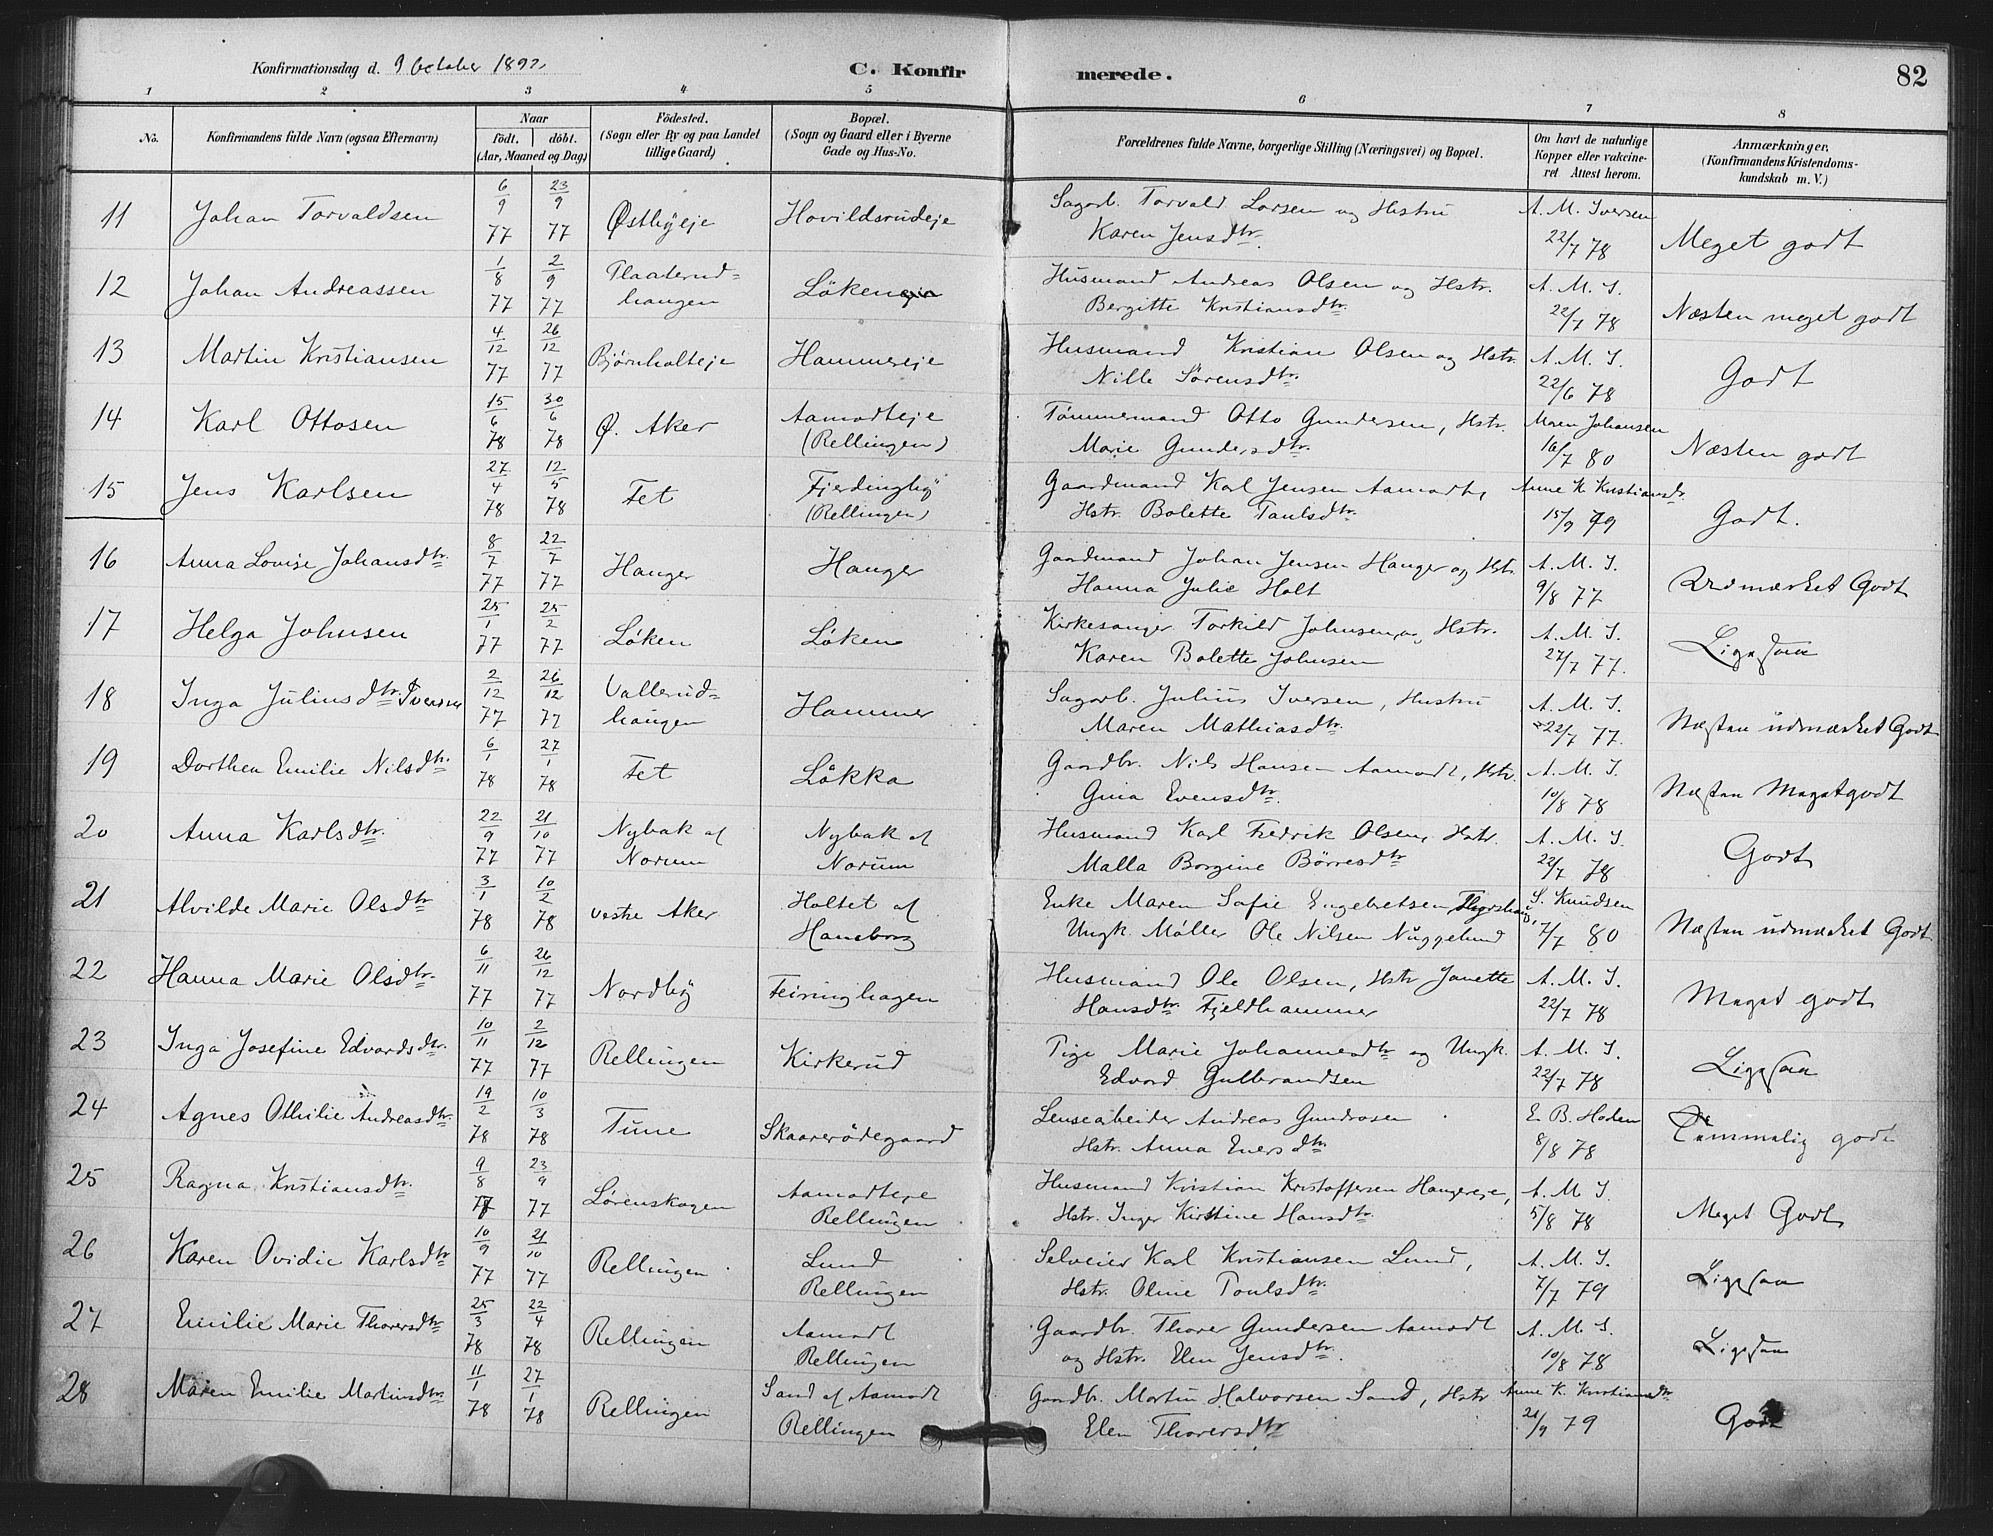 Konfirmationsdag d. 9 October 1892. C. Konfirmerede. 82
1 2 3 4 5 6 7 8
No. Konfirmandens fulde Navn (ogsaa Efternavn) Naar født. døbt. (Aar, Maaned og Dag) Fødested. (Sogn eller By og paa Landet tillige Gaard) Bopæl. (Sogn og Gaard eller i Byerne Gade og Hus-No. Forældrenes fulde Navne, borgerlige Stilling (Næringsvei) og Bopæl. Om havt de naturlige Kopper eller vaccineret Attest herom. Anmærkninger. (Konfirmandens Kristendomskundskab m. V.)
11 Johan Torvaldsen 6/9 77 23/9 77 Østbyeje Hovildsrudeje Sagarb. Torvald Larsen og Hstru Karen Jensdtr. A. M. Iversen 22/7 78 Meget godt
12 Johan Andreassen 1/8 77 2/9 77 Flaaterudhaugen Løken Husmand Andreas Olsen og Hstr. Bergitte Kristiansdtr. A. M. I. 22/7 78 Næsten meget godt
13 Martin Kristiansen 4/12 77 26/12 77 Bjørnholteje Hammereje Husmand Kristian Olsen og Hstr. Nille Sørensdtr. A. M. I. 22/6 78 Godt
14 Karl Ottosen 15/6 78 30/6 78 Ø. Aker Aamodteje (Rellingen) Tømmermand Otto Gundersen, Hstr. Marie Gundersdtr. Maren Johansen 16/7 80 Næsten godt
15 Jens Karlsen 27/4 78 12/5 78 Fet Fjerdingby (Rellingen) Gaardmand Karl Jensen Aamodt, Hstr. Bolette Paulsdtr. Anne K. Kristiansdtr. 15/9 79 Godt.
16 Anna Lovise Johansdtr. 8/7 77 22/7 77 Hanger Hanger Gaardmand Johan Jensen Hanger og Hst. Hanna Julie Holt A. M. I. 9/8 77 Udmærket Godt
17 Helga Johnsen 25/1 77 25/2 77 Løken Løken Kirkesanger Torkild Johnsen og Hstr. Karen Bolette Johnsen A. M. I. 27/7 77. Ligesaa
18 Inga Juliusdtr. Iversen 2/12 77 26/12 77 Vallerudhaugen Hammer Sagarb. Julius Iversen, Hustru Maren Mathiasdtr. A. M. I. 22/7 77. Næsten udmærket Godt
19 Dorthea Emilie Nilsdtr. 6/1 78 27/1 78 Fet Løkka Gaardbr. Nils Hansen Aamodt, Hstr. Gina Evensdtr. A. M. I. 10/8 78 Næsten Meget godt
20 Anna Karlsdtr. 22/9 77 21/10 77 Nybak af Norum Nybak af Norum Husmand Karl Fredrik Olsen, Hstr. Malla Borgine Børresdtr A. M. I. 22/7 78 Godt
21 Alvilde Marie Olsdtr 3/1 78 10/2 78 vestre Aker Holtet af Haneborg Enke Maren Sofie Engebretsen Thorshaug, Ungk. Møller Ole Nilsen Nuggelund S. Knudsen 7/7 80 Næsten udmærket Godt
22 Hanna Marie Olsdtr. 6/11 77 26/12 77 Nordby Feiringhagen Husmand Ole Olsen, Hstr Janette Hansdtr. Fjeldhammer A. M. I. 22/7 78 Meget godt
23 Inga Josefine Edvardsdtr. 10/11 77 2/12 77 Rellingen Kirkerud Pige Marie Johannesdtr og Ungk. Edvard Gulbrandsen A. M. I. 22/7 78 Ligesaa
24 Agnes Othilie Andreasdtr. 19/2 78 10/3 78 Tune Skaarerødegaard Lensearbeider Andreas Gundrosen Hstr. Anna Enersdtr E. B. Holen 8/8 78 Temmelig godt
25 Ragna Kristiansdtr. 9/8 77 23/9 77 Lørenskogen Aamodteje Rellingen Husmand Kristian Kristoffersen Hangereje, Hstr. Inger Kirstine Hansdtr. A. M. I 5/8 78 Meget Godt
26 Karen Ovidie Karlsdtr 10/9 77 21/10 77 Rellingen Lund Rellingen Selveier Karl Kristiansen Lund, Hstr. Oline Poulsdtr. A. M. I. 7/7 79 Ligesaa
27 Emilie Marie Thorersdtr 25/3 78 22/4 78 Rellingen Aamodt Rellingen Gaardbr. Thorer Gundersen Aamodt og Hstr. Elen Jensdtr. A. M. I. 10/8 78 Ligesaa
28 Maren Emilie Martinsdtr. 11/1 78 27/1 78 Rellingen Sand af Aamodt Rellingen Gaardbr. Martin Halvorsen Sand, Hstr Elen Thorersdtr Anne K. Kristiansdtr. 21/9 79 Godt